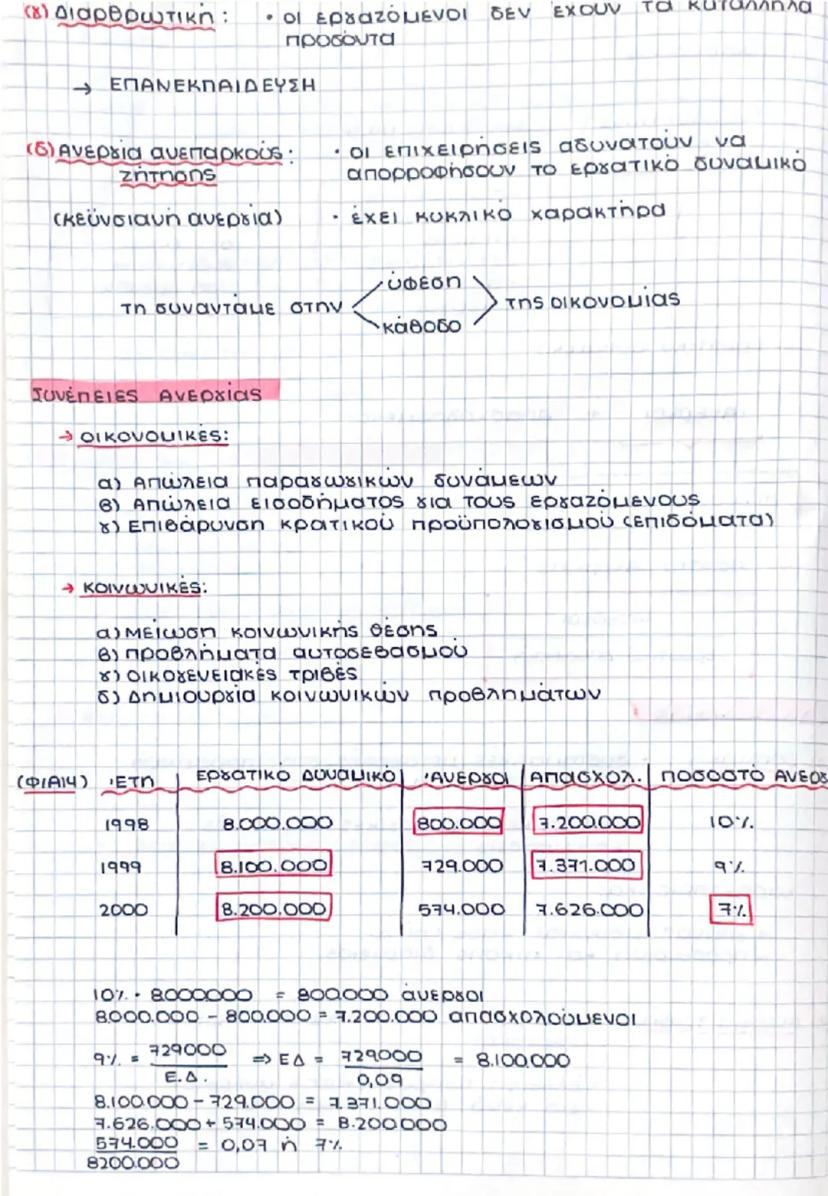 (γ) Διαρθρωτική: • οι εργαζόμενοι δεν έχουν τα κατάλληλα
προσόντα
→ ΕΠΑΝΕΚΠΑΙΔΕΥΣΗ
(δ) Ανεργία ανεπαρκούς: • οι επιχειρήσεις αδυνατούν να
ζήτησης απορροφήσουν το εργατικό δυναμικό
(κεϋνσιανή ανεργία) • έχει κυκλικό χαρακτήρα
ύφεση
τη συναντάμε στην της οικονομίας
κάθοδο
Συνέπειες Ανεργίας
→ οικονομικές:
α) Απώλεια παραγωγικών δυνάμεων
β) Απώλεια εισοδήματος για τους εργαζόμενους
γ) Επιβάρυνση κρατικού προϋπολογισμού (επιδόματα)
→ κοινωνικές:
α) Μείωση κοινωνικής θέσης
β) προβλήματα αυτοσεβασμού
γ) οικογενειακές τριβές
δ) Δημιουργία κοινωνικών προβλημάτων
(Φ1Α14) Έτη Εργατικό Δυναμικό Άνεργοι Απασχολ. ποσοστό ανεργ
1998 8.000.000 800.000 7.200.000 10%
1999 8.100.000 729.000 7.371.000 9%
2000 8.200.000 574.000 7.626.000 7%
10% • 8000000 = 800.000 άνεργοι
8.000.000 - 800.000 = 7.200.000 απασχολούμενοι
9% = 729000 / Ε.Δ. ⇒ ΕΔ = 729000 / 0,09 = 8.100.000
8.100.000 - 729.000 = 7.371.000
7.626.000 + 574.000 = 8.200.000
574.000 / 8200.000 = 0,07 ή 7%